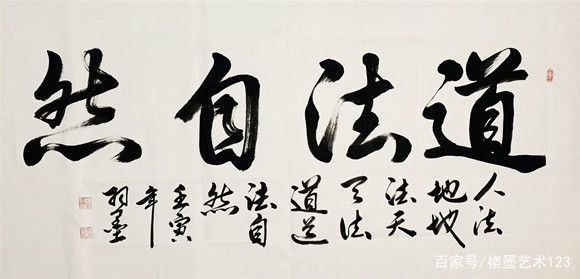 道法自然
人法
地地
法天
天法
道道
法自
然
壬寅
年
羽墨
百家号/楮墨艺术123